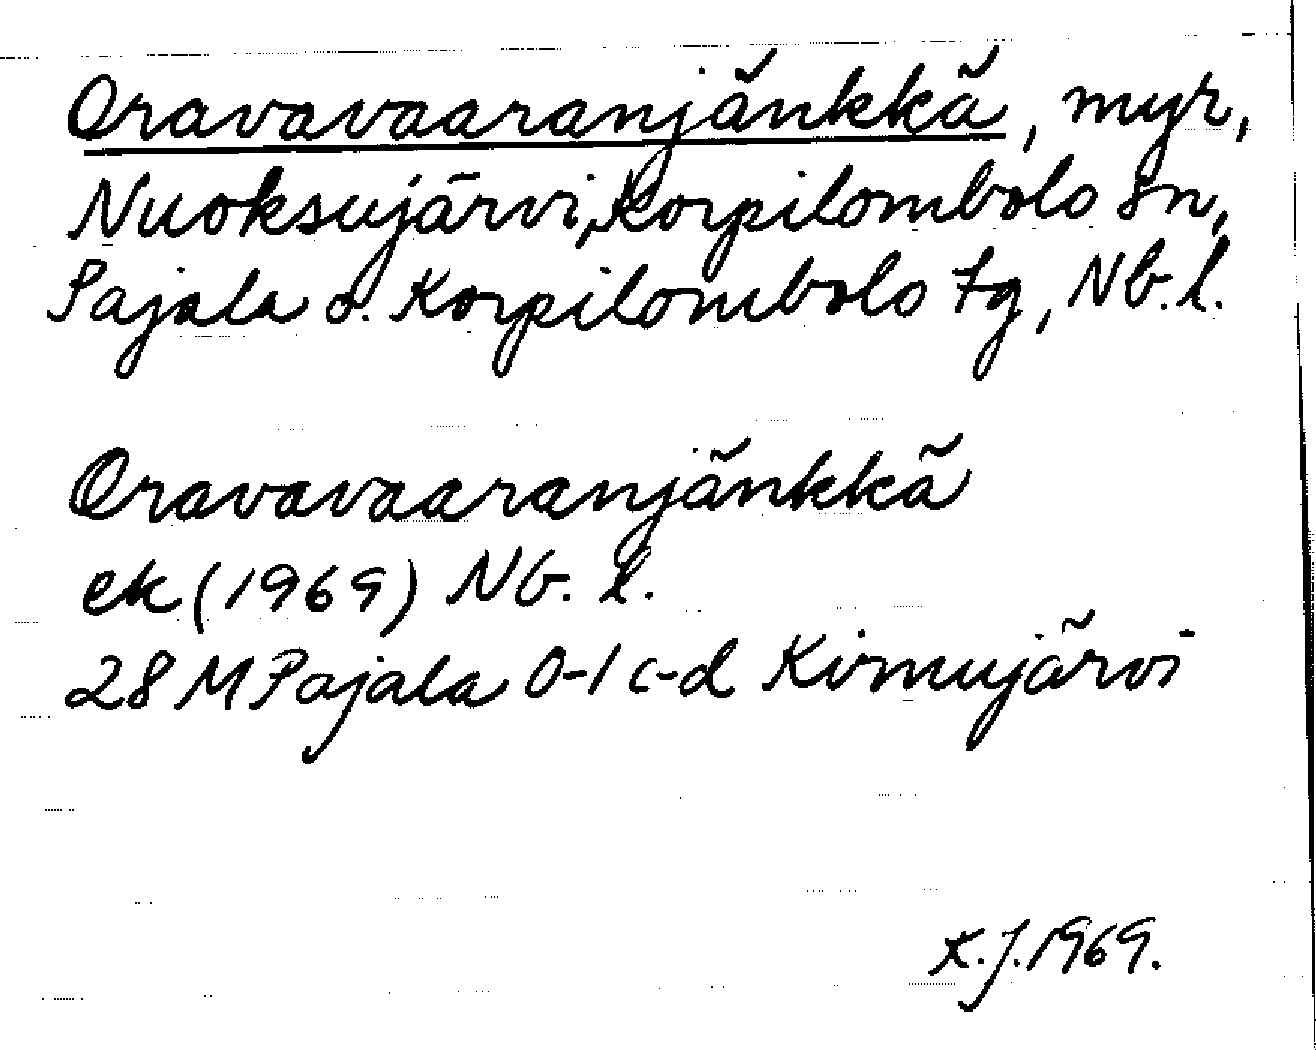 Oravavaaranjänkkä, myr,
Nuoksujärvi, Korpilombolo sn,
Pajala o. Korpilombolo tg, Nb. l.
Oravavaaranjänkkä
ek (1969) Nb. l.
28 M Pajala 0-1 c-d Kirnujärvi
K.J. 1969.